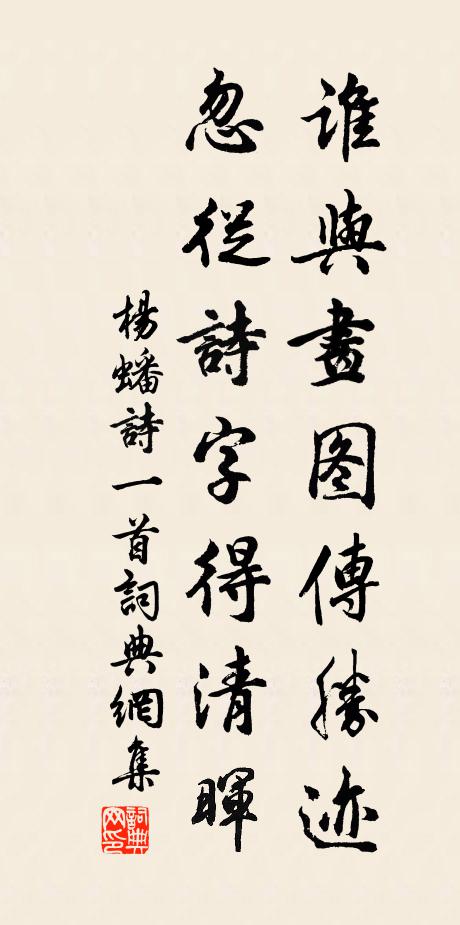 誰與畫图傳勝迹
忽從詩字得清暉
楊蟠詩一首詞典網集
詞典网印